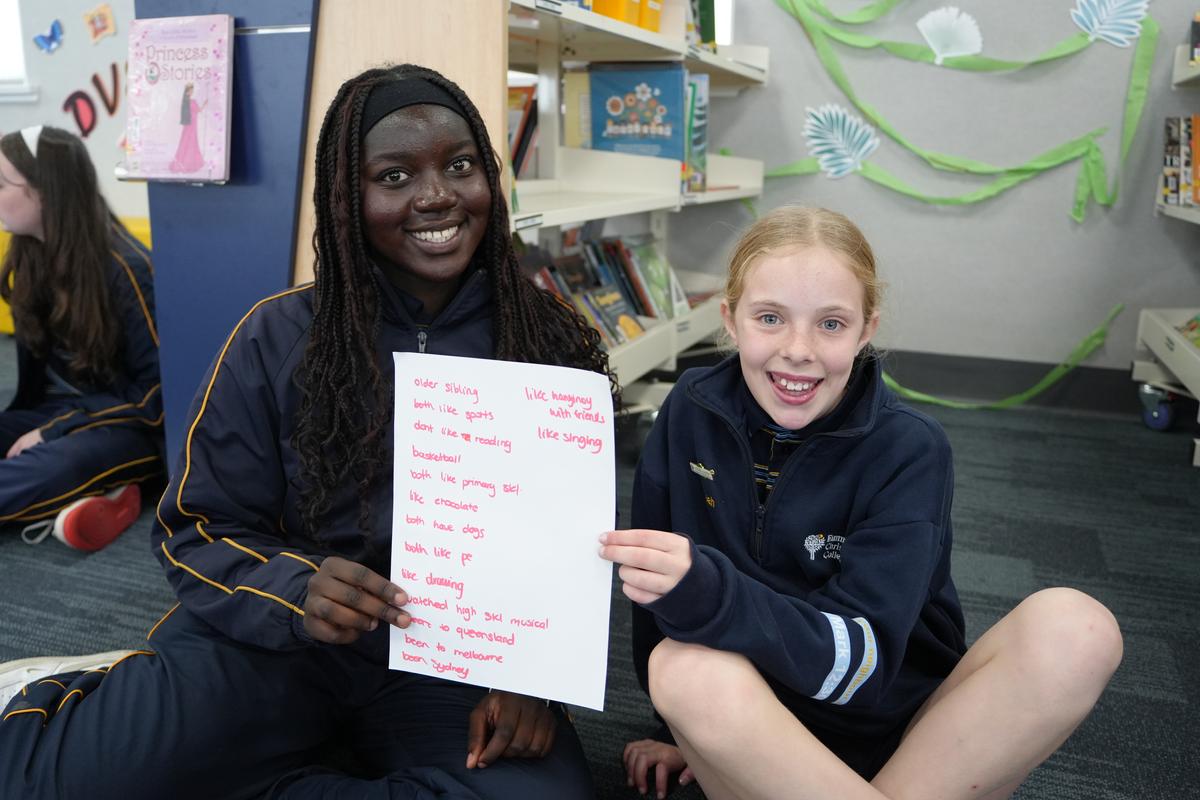 Princess
Stories
older sibling
both like sports
dont like reading
basketball
both like primary skl.
like chocolate
both have dogs
both like pe
like drawing
watched high skl musical
been to queensland
been to melbourne
been Sydney
like hanging
with friends
like singing
Mark 12:3